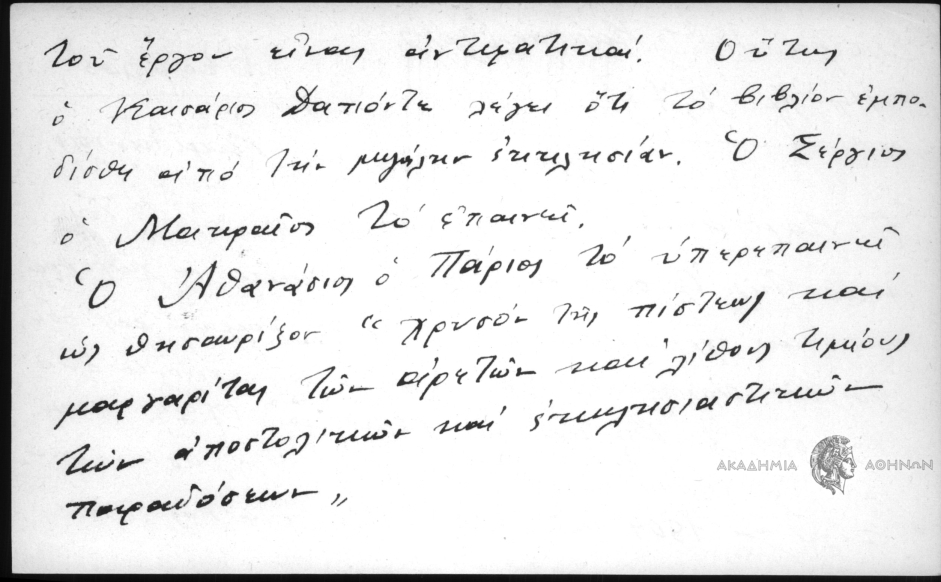 τοῦ ἔργου εἶναι ἀντιφατικαί. Οὕτως
ὁ Καισάριος Δαπόντε λέγει ὅτι τό βιβλίον ἐμπο-
δίσθη ἀπό τήν μεγάλην ἐκκλησίαν. Ὁ Σέργιος
ὁ Μακραῖος τό ἐπαινεῖ.
Ὁ Ἀθανάσιος ὁ Πάριος τό ὑπερεπαινεῖ
ὡς θησαυρίζον "χρυσόν τῆς πίστεως καί
μαργαρίτας τῶν ἀρετῶν καί λίθους τιμίους
τῶν ἀποστολικῶν καί ἐκκλησιαστικῶν
παραδόσεων„
ΑΚΑΔΗΜΙΑ ΑΘΗΝΩΝ